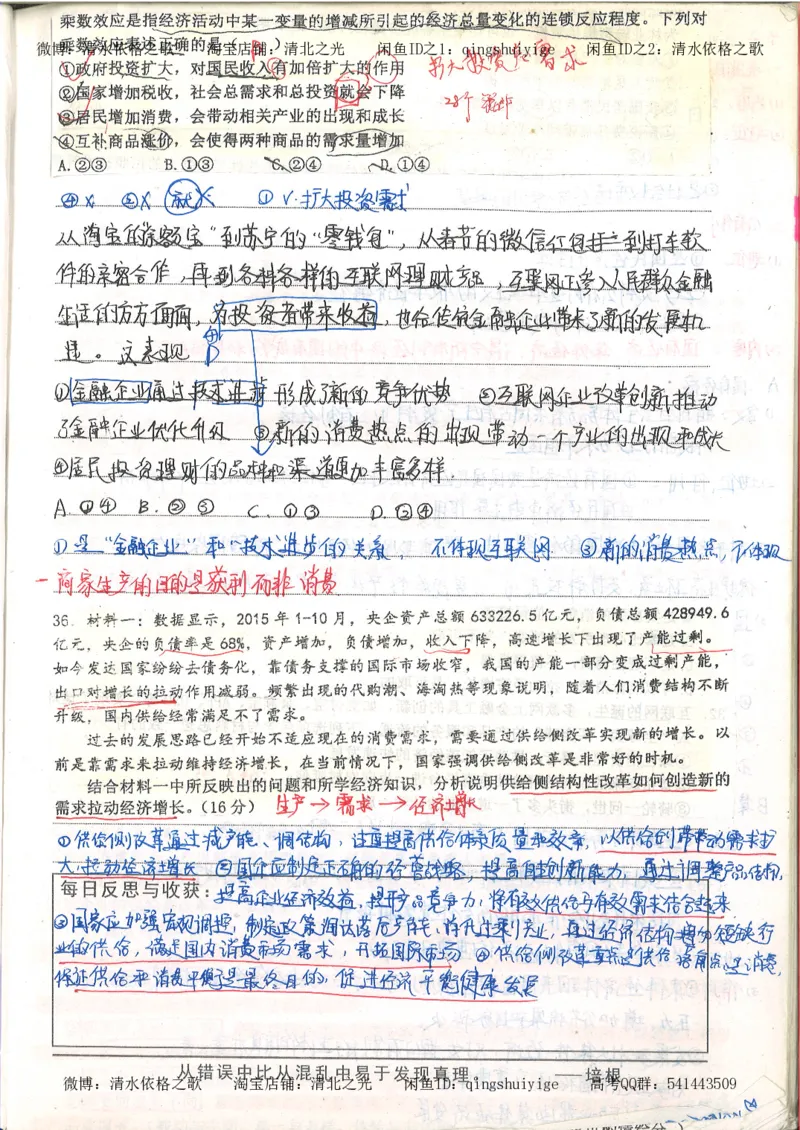 乘数效应是指经济活动中某一变量的增减所引起的经济总量变化的连锁反应程度。下列对
乘数效应表述正确的是（ ）
微博：清水依格之歌 淘宝店铺：清北之光 闲鱼ID之1：qingshuiyige 闲鱼ID之2：清水依格之歌
①政府投资扩大，对国民收入有加倍扩大的作用
②国家增加税收，社会总需求和总投资就会下降
③居民增加消费，会带动相关产业的出现和成长
④互补商品涨价，会使得两种商品的需求量增加
A.②③ B.①③ C.②④ D.①④
扩大投资总需求
④× ②× 就× ①√扩大投资需求
从淘宝的“余额宝”到苏宁的“零钱包”，从春节的微信红包拜年到打车软
件的亲密合作，再到各种各样的互联网理财产品，互联网正参入人民群众金融
生活的方方面面，为投资者带来收益，也给传统金融企业带来了新的发展机
遇。这表现 D
①金融企业通过技术进步形成了新的竞争优势 ②互联网企业改革创新推动
了金融企业优化升级 ③新的消费热点的出现带动一个产业的出现和成长
④居民投资理财的品种和渠道更加丰富多样.
A.①④ B.②③ C.①③ D.②④
①是“金融企业”和“技术进步”的关系 不体现互联网 ③新的消费热点，不体现
一商家生产的目的是获利而非消费
36. 材料一：数据显示，2015年1-10月，央企资产总额633226.5亿元，负债总额428949.6
亿元，央企的负债率是68%，资产增加，负债增加，收入下降，高速增长下出现了产能过剩。
如今发达国家纷纷去债务化，靠债务支撑的国际市场收窄，我国的产能一部分变成过剩产能，
出口对增长的拉动作用减弱。频繁出现的代购潮、海淘热等现象说明，随着人们消费结构不断
升级，国内供给经常满足不了需求。
过去的发展思路已经开始不适应现在的消费需求，需要通过供给侧改革实现新的增长。以
前是靠需求来拉动维持经济增长，在当前情况下，国家强调供给侧改革是非常好的时机。
结合材料一中所反映出的问题和所学经济知识，分析说明供给侧结构性改革如何创造新的
需求拉动经济增长。（16分） 生产→需求→经济增长
①供给侧改革通过减产能、调结构，注重提高供给体系质量和效率，以供给创新带动需求扩
大，拉动经济增长 ②国企应制定正确的经营战略，提高自主创新能力，通过调整产品结构，
每日反思与收获：提高企业经济效益，提升产品竞争力，将有效供给与有效需求结合起来
③国家应加强宏观调控，制定政策淘汰落后产能，
业的供给，满足国内消费市场需求，开拓国际市场 ④供给侧改革
保证供给平衡是最终目的，促进经济平衡健康发展
从错误中比从混乱中易于发现真理。 ——培根
微博：清水依格之歌 淘宝店铺：清北之光 闲鱼ID：qingshuiyige 高考QQ群：541443509